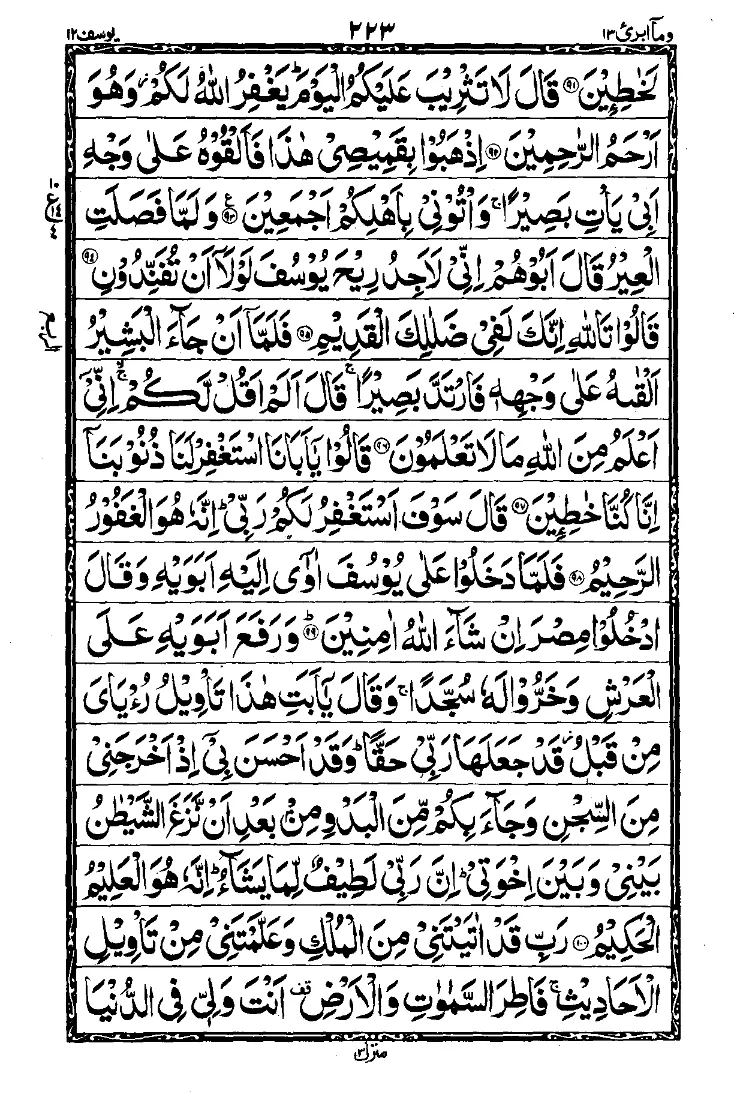 یوسف ۱۲ ۲۲۳ وما ابرئ ۱۳
لَخٰطِـِٕیْنَ ﴿۹۱﴾ قَالَ لَا تَثْرِیْبَ عَلَیْكُمُ الْیَوْمَ ؕ یَغْفِرُ اللّٰهُ لَكُمْ ؗ وَهُوَ
اَرْحَمُ الرّٰحِمِیْنَ ﴿۹۲﴾ اِذْهَبُوْا بِقَمِیْصِیْ هٰذَا فَاَلْقُوْهُ عَلٰی وَجْهِ
اَبِیْ یَاْتِ بَصِیْرًا ۚ وَاْتُوْنِیْ بِاَهْلِكُمْ اَجْمَعِیْنَ ﴿۹۳﴾ وَلَمَّا فَصَلَتِ
الْعِیْرُ قَالَ اَبُوْهُمْ اِنِّیْ لَاَجِدُ رِیْحَ یُوْسُفَ لَوْلَاۤ اَنْ تُفَنِّدُوْنِ ﴿۹۴﴾
قَالُوْا تَاللّٰهِ اِنَّكَ لَفِیْ ضَلٰلِكَ الْقَدِیْمِ ﴿۹۵﴾ فَلَمَّاۤ اَنْ جَآءَ الْبَشِیْرُ
اَلْقٰىهُ عَلٰی وَجْهِهٖ فَارْتَدَّ بَصِیْرًا ۚ قَالَ اَلَمْ اَقُلْ لَّكُمْ ۚ اِنِّیْۤ
اَعْلَمُ مِنَ اللّٰهِ مَا لَا تَعْلَمُوْنَ ﴿۹۶﴾ قَالُوْا یٰۤاَبَانَا اسْتَغْفِرْ لَنَا ذُنُوْبَنَاۤ
اِنَّا كُنَّا خٰطِـِٕیْنَ ﴿۹۷﴾ قَالَ سَوْفَ اَسْتَغْفِرُ لَكُمْ رَبِّیْ ؕ اِنَّهٗ هُوَ الْغَفُوْرُ
الرَّحِیْمُ ﴿۹۸﴾ فَلَمَّا دَخَلُوْا عَلٰی یُوْسُفَ اٰوٰۤی اِلَیْهِ اَبَوَیْهِ وَقَالَ
ادْخُلُوْا مِصْرَ اِنْ شَآءَ اللّٰهُ اٰمِنِیْنَ ﴿۹۹﴾ؕ وَرَفَعَ اَبَوَیْهِ عَلَی
الْعَرْشِ وَخَرُّوْا لَهٗ سُجَّدًا ۚ وَقَالَ یٰۤاَبَتِ هٰذَا تَاْوِیْلُ رُءْیَایَ
مِنْ قَبْلُ ؗ قَدْ جَعَلَهَا رَبِّیْ حَقًّا ؕ وَقَدْ اَحْسَنَ بِیْۤ اِذْ اَخْرَجَنِیْ
مِنَ السِّجْنِ وَجَآءَ بِكُمْ مِّنَ الْبَدْوِ مِنْۢ بَعْدِ اَنْ نَّزَغَ الشَّیْطٰنُ
بَیْنِیْ وَبَیْنَ اِخْوَتِیْ ؕ اِنَّ رَبِّیْ لَطِیْفٌ لِّمَا یَشَآءُ ؕ اِنَّهٗ هُوَ الْعَلِیْمُ
الْحَكِیْمُ ﴿۱۰۰﴾ رَبِّ قَدْ اٰتَیْتَنِیْ مِنَ الْمُلْكِ وَعَلَّمْتَنِیْ مِنْ تَاْوِیْلِ
الْاَحَادِیْثِ ۚ فَاطِرَ السَّمٰوٰتِ وَالْاَرْضِ ۫ اَنْتَ وَلِیّٖ فِی الدُّنْیَا
منزل ۳